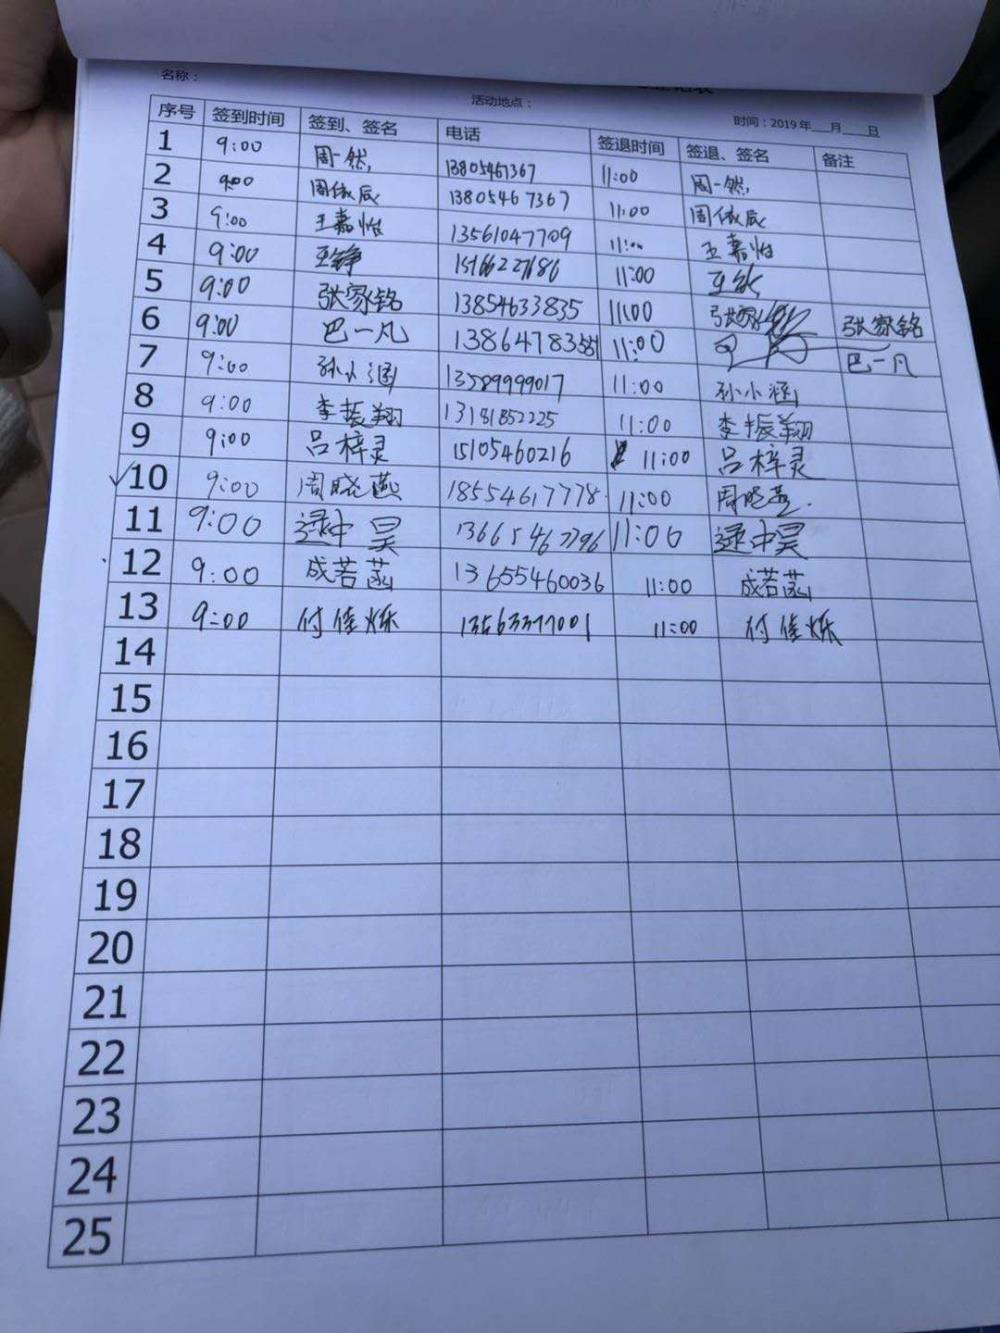 名称：
活动地点：
时间：2019 年___月___日
序号 签到时间 签到、签名 电话 签退时间 签退、签名 备注
1 9:00 周一然 13805467367 11:00 周一然
2 9:00 周依辰 13805467367 11:00 周依辰
3 9:00 王嘉怡 13561047709 11:00 王嘉怡
4 9:00 11:00
5 9:00 张家铭 13854633835 11:00 张家铭
6 9:00 巴一凡 11:00 巴一凡
7 9:00 孙小涵 13589999017 11:00 孙小涵
8 9:00 李振翔 13181852225 11:00 李振翔
9 9:00 吕梓灵 15105460216 11:00 吕梓灵
10 9:00 周晓燕 18554617778 11:00 周晓燕
11 9:00 逯中昊 13665462796 11:00 逯中昊
12 9:00 成若菡 13655460036 11:00 成若菡
13 9:00 付佳烁 11:00 付佳烁
14
15
16
17
18
19
20
21
22
23
24
25